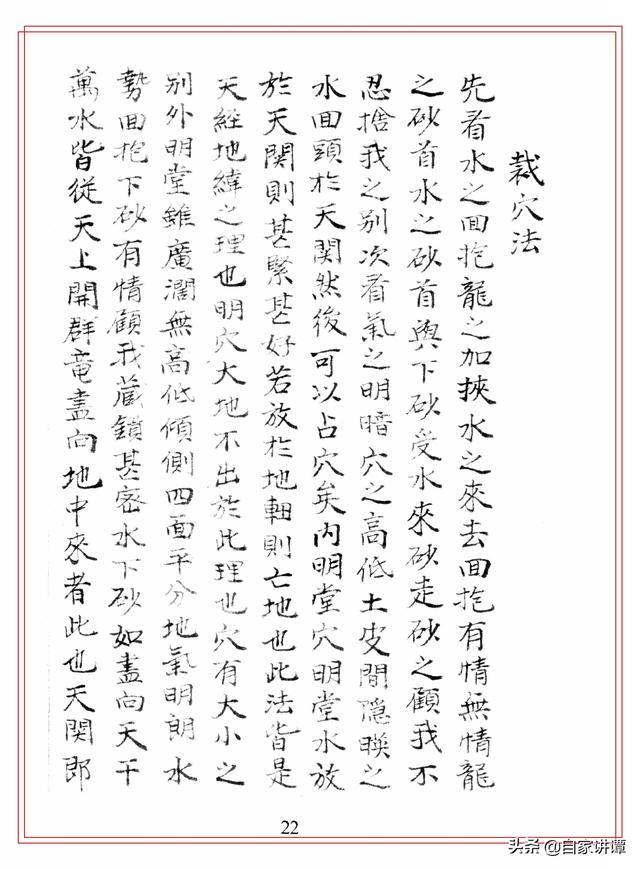 裁穴法
先看水之回抱龍之加挾水之來去回抱有情無情龍
之砂首水之砂首與下砂受水來砂走砂之顧我不
忍捨我之别次看氣之明暗穴之高低土皮間隱暎之
水回頭於天関然後可以占穴矣内明堂穴明堂水放
於天関則甚緊甚好若放於地軸則亡地也此法皆是
天經地緯之理也明穴大地不出於此理也穴有大小之
别外明堂雖廣濶無高低傾側四面平分地氣明朗水
勢回抱下砂有情顧我藏鎖甚密水下砂如盡向天干
萬水皆從天上開群竜盡向地中來者此也天関即
22
头条 @自家讲谭